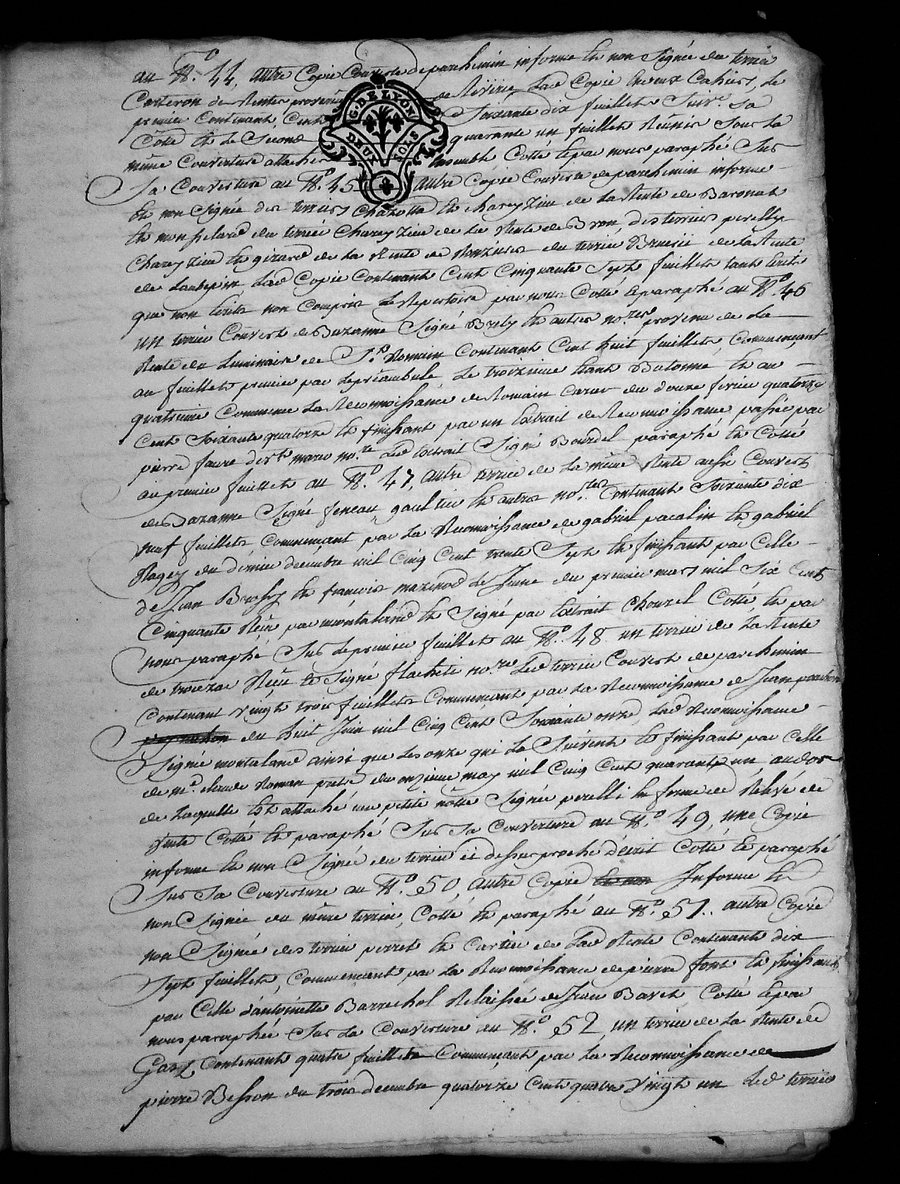 au N.o 44, autre Copie Couverte de parchemin informe et non Signée du terrier
Carteron de Rentes provenü de Rivirie Lad.e Copie en deux Cahiers, le
premier Contenant Cent Soixante dix feuillets Suiv.t Sa
Cotte et le Second quarante un feuillets Réunis Sous la
même Couverture attachés Ensemble Cotté et par nous paraphé Sur
G. DE LYON
DEUX SOLS
Sa Couverture au N.o 45 autre Copie Couverte de parchemin informe
et non Signée des terriers Charetta et Chareyzieu de La Rente de Baronat
et monfelard du terrier Chareyzieu de La Rente de Bron, des terriers perelly
Chareyzieu et girard de La Rente de du terrier de La Rente
de Laubepin Lad.e Copie Contenant Cent Cinquante Sept feuillets tant Ecrits
que non Ecrits non Compris Le Repertoire par nous Cotté et paraphé au N.o 46
un terrier Couvert de Bazanne Signé et autres no.res provenu de La
Rente du Luminaire de S.t Romain Contenant Cent huit feuillets, Commençant
au feuillet premier par Le préambule Le troizieme Etant Batonné et au
quatrieme Commence La Reconnoissance de Romain du douze fevrier quatorze
Cent Soixante quatorze et finissant par un Extrait de Reconnoissance passée par
pierre faure dit no.re Led. Extrait Signé Bourdel paraphé et Cotté
au premier feuillet au N.o 47, autre terrier de La même Rente aussi Couvert
de Bazanne Signé feneau gaultier et autres no.res Contenant Soixante dix
neuf feuillets Commençant par La Reconnoissance de gabriel pacalin et gabriel
Ragey du dernier decembre mil Cinq Cent trente Sept et finissant par Celle
de Jean et françois du premier mars mil Six Cent
Cinquante Reçüe par montaland et Signé par Extrait Chouzel Cotté et par
nous paraphé Sur Le premier feuillet au N.o 48 un terrier de La Rente
de trocezar Reçu et Signé flachete no.re Led. terrier Couvert de parchemin
Contenant vingt trois feuillets Commençant par La Reconnoissance de Jean
du huit Juin mil Cinq Cent Soixante onze Lad.e Reconnoissance
Signée montaland ainsi que Les onze qui La Suivent et finissant par Celle
de m.e claude Roman pretre du onzieme may mil Cinq Cent quarante un, au dos
de Laquelle Est attaché une petite notte Signée perelli en forme de Relevé de
Rente Cotté et paraphé Sur Sa Couverture au N.o 49, une Copie
informe et non Signée du terrier Ci dessus proche decrit Cotté et paraphé
Sur Sa Couverture au N.o 50, autre Copie Informe et
non Signée du même terrier, Cotté et paraphé au N.o 51. autre Copie
non Signée des terriers perret et Cartier de Lad.e Rente Contenant dix
Sept feuillets, Commencant par La Reconnoissance de pierre font et finissant
par Celle d'antoinette Barrechol Relaissée de Jean Bavet, Cotté et par
nous paraphée Sur La Couverture au N.o 52 un terrier de La Rente de
Contenant quatre feuillets Commençant par La Reconnoissance de
pierre Besson du trois decembre quatorze Cent quatre vingt un Led. terrier